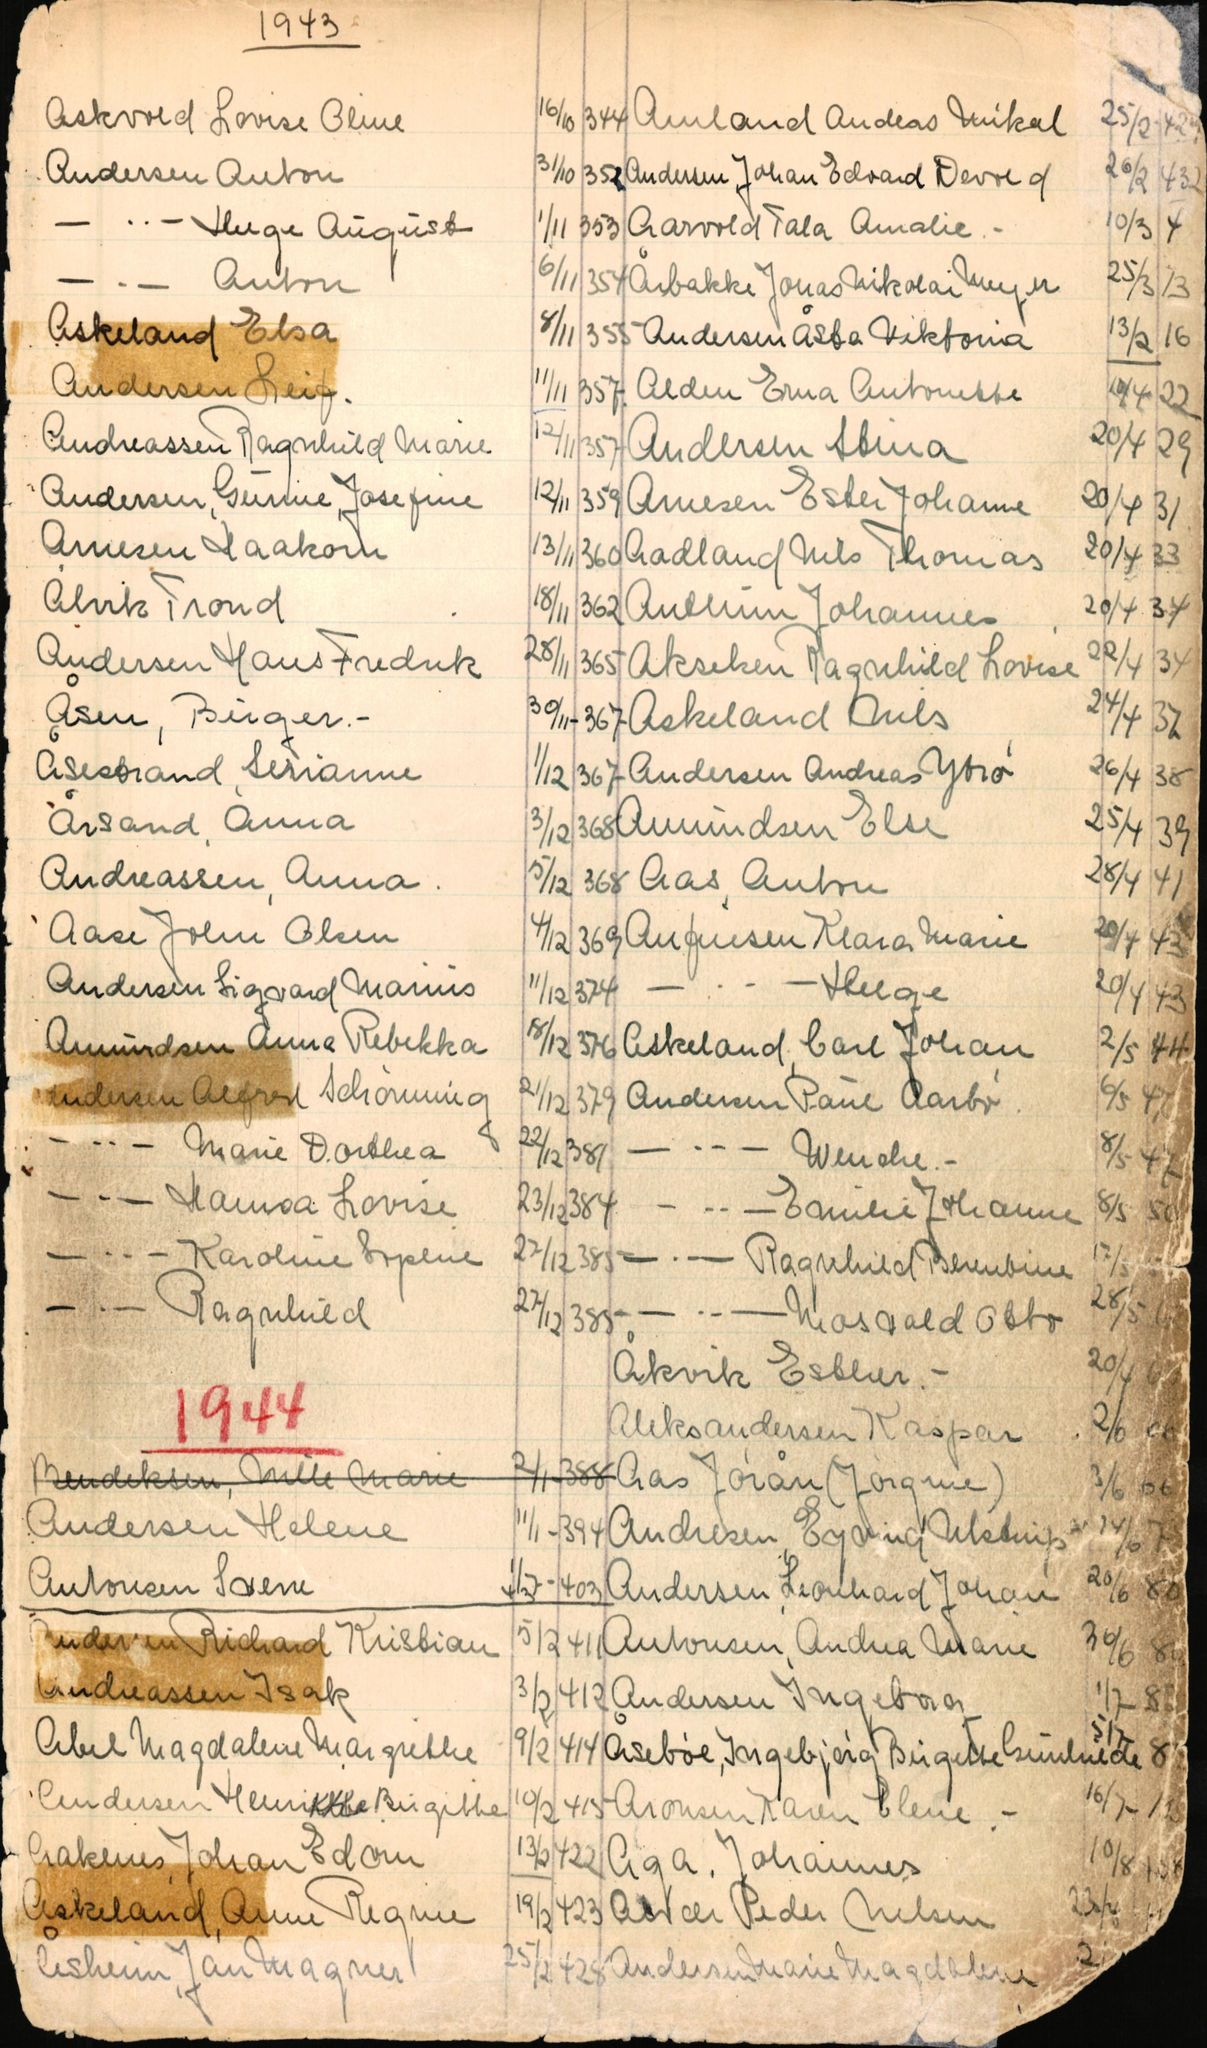 1943
Askvold Lovise Oline 16/10 344
Andersen Anton 31/10 352
— ·· — Helge August 1/11 353
— ·· — Anton 6/11 354
Askeland Elsa 8/11 355
Andersen Leif. 11/11 357
Andreassen Ragnhild Marie 12/11 357
Andersen, Gunnie, Josefine 12/11 359
Arnesen Haakon 13/11 360
Ålvik Trond 18/11 362
Andersen Hans Fredrik 28/11 365
Åsen, Birger.- 30/11 - 367
Åsestrand, Serianne 1/12 367
Årsand, Anna 3/12 368
Andreassen, Anna. 5/12 368
Aase John Olsen 4/12 369
Andersen Sigvard Marius 11/12 374
Amundsen Anna Rebekka 18/12 376
Andersen Alfred Schørming 21/12 379
— ·· — Marie Dorthea 22/12 381
— ·· — Hanna Lovise 23/12 384
— ·· — Karoline 27/12 385
— ·· — Ragnhild 27/12 385
1944
Bendiksen, Mille Marie 2/1 - 388
Andersen Helene 11/1 - 394
Antonsen Sverre 403
Andersen Richard Kristian 5/2 411
Andreassen Isak 3/2 412
Abel Magdalene Margrethe 9/2 414
Andersen Henrikke Birgitte 10/2 415
Aakenes, Johan Edom 13/2 422
Askeland, Anne Regine 19/2 423
Åsheim, Jan Magner 25/2 428
Amland Andreas Mikal 25/2
Andersen, Johan Edvard Devold 26/2 432
Aarvold Tala Amalie.- 10/3 4
Årbakke Jonas Nikolai Meyer 25/3 13
Andersen Åsta Viktoria 13/2 16
Alden Erna Antonette 19/4 22
Andersen Stina 20/4 29
Arnesen Ester Johanne 20/4 31
Aadland Nils Thomas 20/4 33
Anthun Johannes 20/4 34
Akseken Ragnhild Lovise 22/4 34
Askeland Nils 24/4 37
Andersen Andreas Ytrø 26/4 38
Amundsen Else 25/4 39
Aas, Anton 28/4 41
Anfinsen Klara Marie 20/4 43
— ·· — Helge 20/4 43
Askeland, Carl Johan 2/5 44
Andersen Paul Aarbø. 6/5 47
— ·· — Wenche.- 8/5 47
— ·· — Emilie Johanne 8/5 50
— ·· — Ragnhild Berentine 17/5
— ·· — Mosvold Otto 28/5
Åkvik Esther.- 20/4
Aleksandersen Kaspar 2/6
Aas Jørån (Jørgine) 3/6
Andresen, Eyvind Ulstrup 14/6
Andersen, Leonhard Johan 20/6 80
Antonsen, Andrea Marie 30/6
Andersen Ingeborg 1/7
Åsebøe, Ingebjørg Birgitte Gunhilde 5/7
Aronsen Karen Elene.- 16/7
Aga, Johannes 10/8
Peder Nelsen
Andersen Marie Magdalene